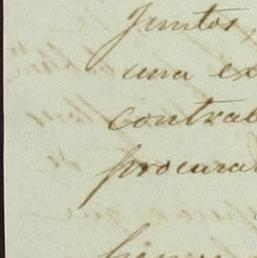 Juntos
una ex
contrat
procurat